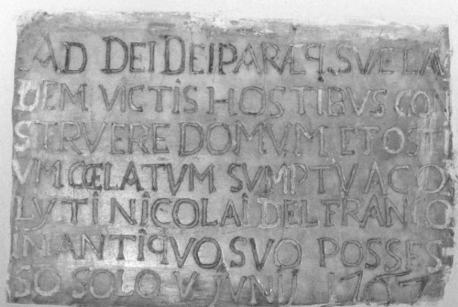 AD DEI DEIPARÆQ. SVE LAV
DEM VICTIS HOSTIBVS CON
STRVERE DOMVM ET OSTI
VM CŒLATVM SVMPTV AC CO
LVTI NICOLAI DEL FRANCO
IN ANTIQVO SVO POSSES
SO SOLO V JVNII